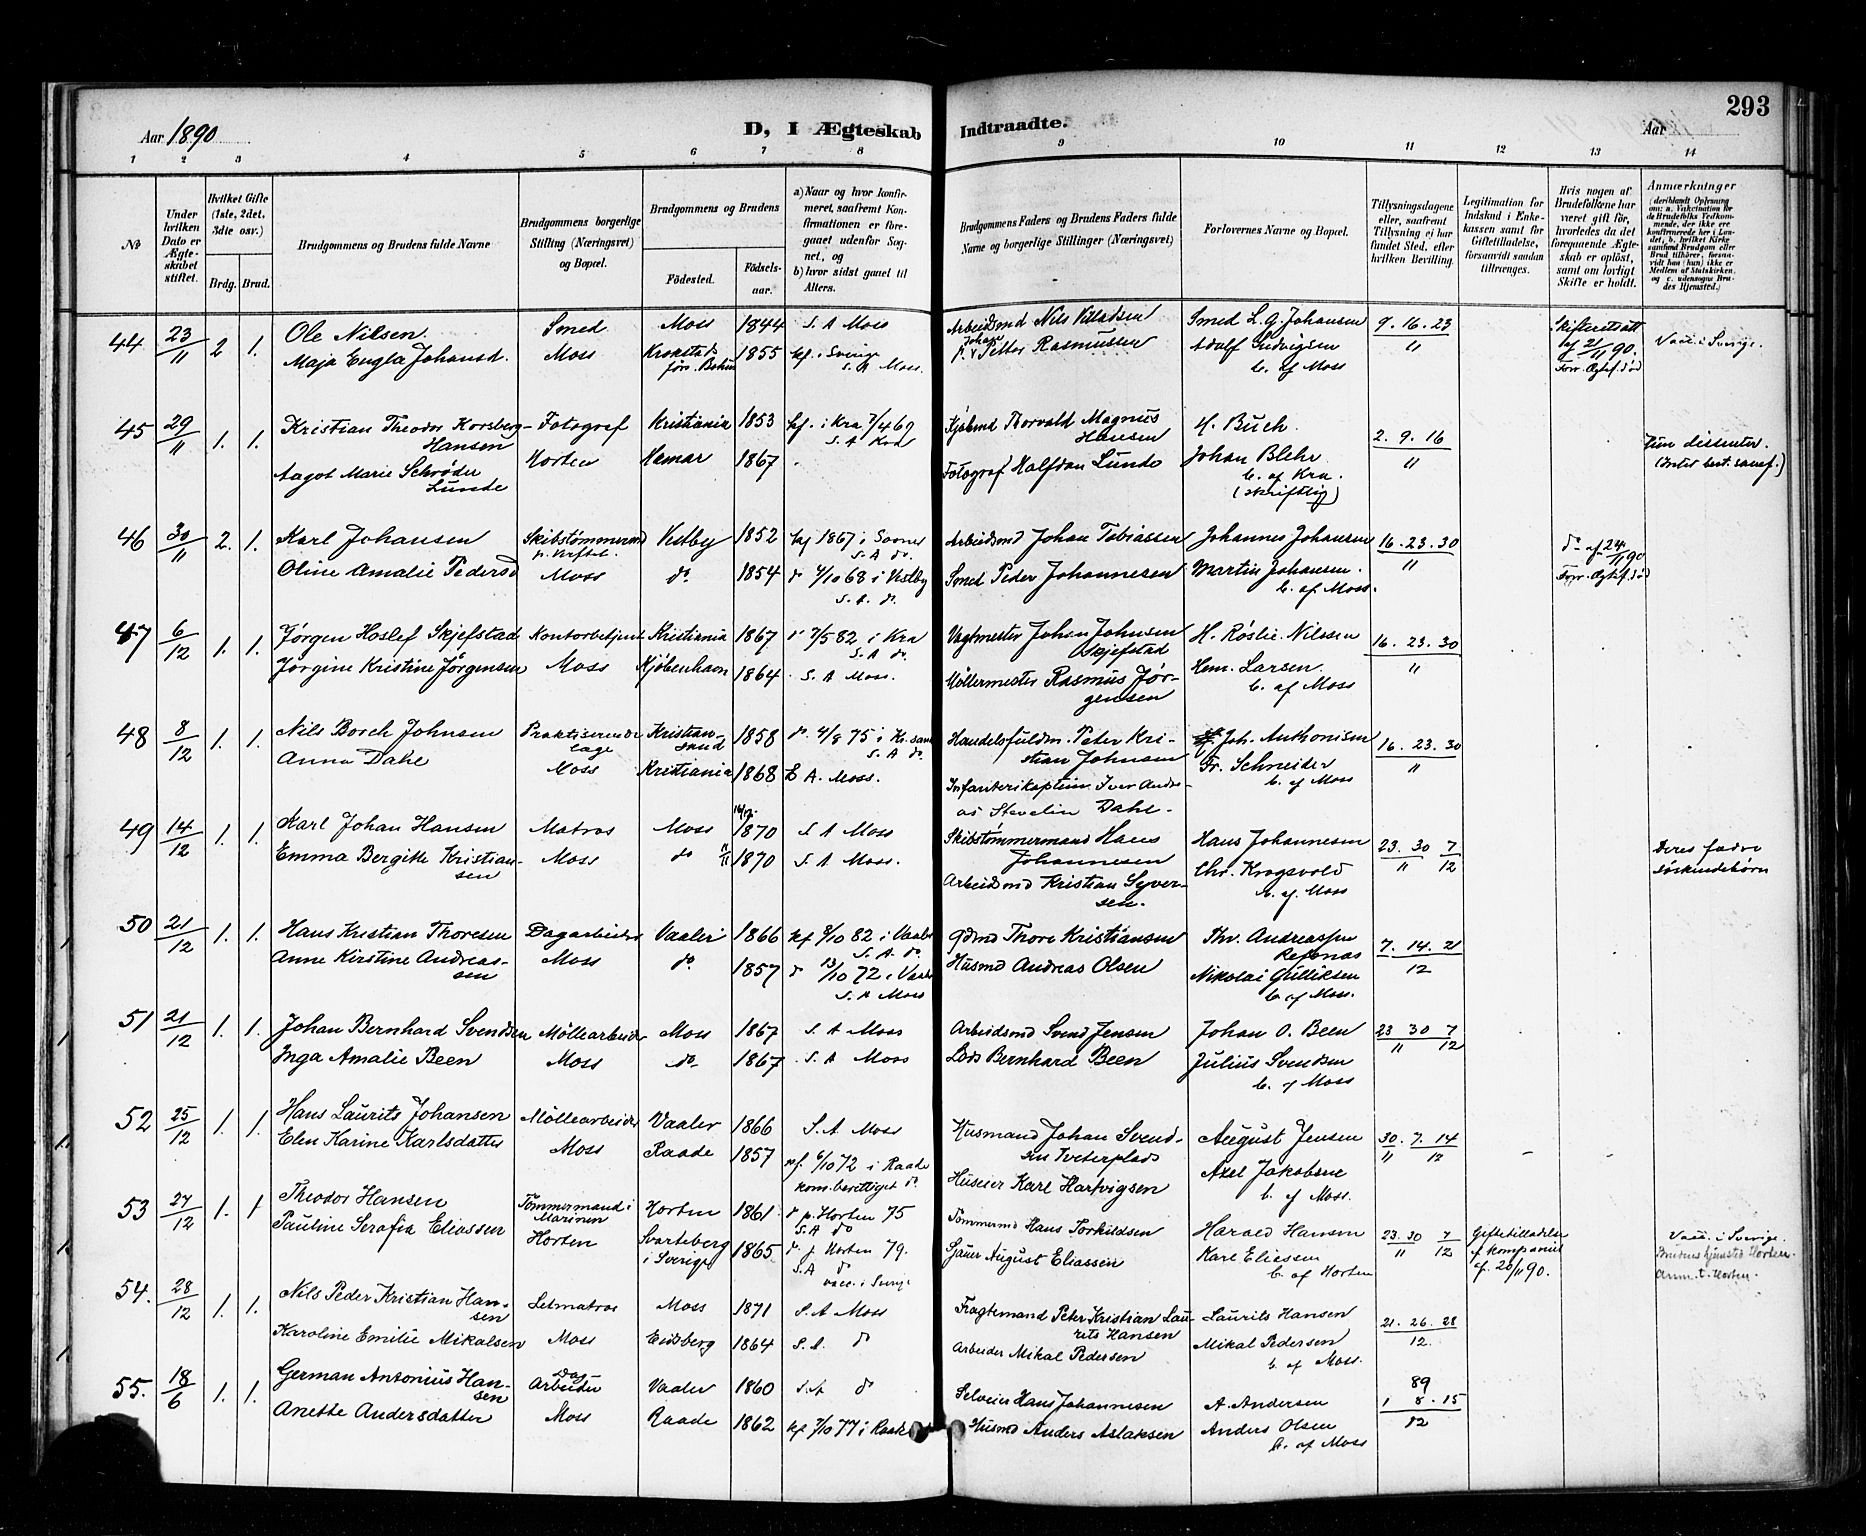 293
Aar 1890
D, I Ægteskab Indtraadte.
Aar
1 2 3 4 5 6 7 8 9 10 11 12 13 14
No
Under hvilken Dato er Ægteskabet stiftet.
Hvilket Gifte (1ste, 2det, 3die osv.)
Brdg. Brud.
Brudgommens og Brudens fulde Navne
Brudgommens borgerlige Stilling (Næringsvei) og Bopæl.
Brudgommens og Brudens
Födested.
Födselsaar.
a) Naar og hvor konfirmeret, saafremt Konfirmationen er foregaaet udenfor Sognet, og
b) hvor sidst gaaet til Alters.
Brudgommens Faders og Brudens Faders fulde Navne og borgerlige Stillinger (Næringsvei)
Forlovernes Navne og Bopæl.
Tillysningsdagene eller, saafremt Tillysning ei har fundet Sted, efter hvilken Bevilling.
Legitimation for Indskud i Enkekassen samt for Giftetilladelse, forsaavidt saadan tiltrænges.
Hvis nogen af Brudefolkene har været gift för, hvorledes da det foregaaende Ægteskab er oplöst, samt om lovligt Skifte er holdt.
Anmærkninger (deriblandt Oplysning om: a. Vaccination for de Brudefolks Vedkommende, der ikke ere konfirmerede her i Landet, b. hvilket Kirkesamfund Brudgom eller Brud tilhörer, forsaavidt han (hun) ikke er Medlem af Statskirken, og c. udensogns Brudes Hjemsted.)
44 23/11 2 1. Ole Nilsen Smed Moss 1844 S. A Moss Arbeidsmd Nils Smed L. G. Johansen 9. 16. 23 / 11 Skifteretsatt af 21/11 90. Vacc. i Sverige.
Maja Engla Johansd. Moss Krokstad 1855 kf. i Sverige S. A Moss. Petter Rasmussen Adolf Ludvigsen b. af Moss Forr. Ægtef. død
45 29/11 1. 1. Kristian Theodor Korsberg Hansen Fotograf Kristiania 1853 kf. i Kra 7/4 69 S. A Kra Kjøbmd Thorvald Magnus Hansen H. Buch. 2. 9. 16 / 11 Hun dissenter.
Aagot Marie Schrøder Lunde Horten Hamar 1867 Fotograf Halfdan Lunde Johan Blehr b. af Kra. (skriftlig)
46 30/11 2. 1. Karl Johansen Skibstømmermd Vestby 1852 kf 1867 i Sooner S. A do. Arbeidsmd Johan Tobiassen Johannes Johansen 16. 23. 30 / 11 do af 24/11 90
Oline Amalie Pedersd Moss do. 1854 do 4/10 68 i Vestby S. A. do. Smed Peder Johannesen Martin Johansen. b. af Moss. Forr. Ægtef. død
47 6/12 1. 1. Jørgen Hoslef Skjefstad Kontorbetjent Kristiania 1867 do 7/5 82 i Kra S. A do. Vagtmester Johan Johnsen Skjefstad H. Røslie-Nilssen 16. 23. 30 / 11
Jørgine Kristine Jørgensen Moss Kjøbenhavn 1864 S. A Moss. Møllermester Rasmus Jørgensen Hem. Larsen. b. af Moss
48 8/12 1. 1. Nils Borch Johnsen Praktiserende læge Kristiansund 1858 do. 4/8 75 i Kr.sand S. A do. Handelsfuldm. Peter Kristian Johnsen Joh. Anthonisen 16. 23. 30 / 11
Anna Dahl Moss Kristiania 1868 S. A. Moss. Infanterikaptein Iver Andreas Dahl. Fr. Schneider b. af Moss
49 14/12 1. 1. Karl Johan Hansen Matros Moss 1870 S. A Moss Skibstømmermand Hans Johannesen Hans Johannesen 23. 30 / 11 7/12 Deres fædre
Emma Bergitte Kristiansen Moss do 1870 S. A Moss. Arbeidsmd Kristian Syversen. Chr. Krogsvold b. af. Moss søskendebørn
50 21/12 1. 1. Hans Kristian Thoresen Dagarbeider Vaaler 1866 kf 8/10 82 i Vaaler S. A. do. Gdmd Thore Kristiansen Thv. Andreassen Refsnæs 7. 14. 21 / 12
Anne Kirstine Andreassen Moss do. 1857 do 13/10 72 i S. A Moss Husmd Andreas Olsen Nikolai Gulliksen b. af Moss.
51 21/12 1. 1. Johan Bernhard Svendsen Møllearbeider Moss 1867 S. A Moss Arbeidsmd Svend Jensen Johan O. Been 23 30 / 11 7/12
Inga Amalie Been Moss do 1867 S. A Moss Lods Bernhard Been Julius Svendsen b. af Moss
52 25/12 1. 1. Hans Laurits Johansen Møllearbeider Vaaler 1866 S. A. Moss Husmand Johan Svendsen Tveterplads August Jensen 30. / 11 7. 14 / 12
Elen Karine Karlsdatter Moss Raade 1857 kf. 6/10 72 i Raade kom.berettiget do. Huseier Karl Hartvigsen Axel Jakobsen b. af Moss.
53 27/12 1. 1 Theodor Hansen Tømmermand i Marinen Horten 1861 do p. Horten 75 S. A do Tømmermd Hans Torkildsen Harald Hansen 23. 30 / 11 7/12 Giftetilladelse af kompaniet af. 26/11 90. Vacc. i Sverige.
Pauline Serafia Eliassen Horten Svarteborg i Sverige 1865 do. p Horten 79. S. A do vacc. i Sverige August Eliassen Karl Eliessen b. af Horten Brudens hjemsted Horten. Anm. t. Horten.
54. 28/12 1. 1. Nils Peder Kristian Hansen Letmatros Moss 1871 S. A Moss Fragtemand Peter Kristian Laurits Hansen Laurits Hansen 21. 26. 28 / 12
Karoline Emilie Mikalsen Moss Eidsberg 1864 S. A. do Arbeider Mikal Pedersen Mikal Pedersen b. af Moss.
55. 18/6 1. 1. German Antonius Hansen Dagarbeider Vaaler 1860 S. A do Selveier Hans Johannesen A. Andersen 89 1 8. 15 / 12
Anette Andersdatter Moss Raade 1862 kf 7/10 77 i Raade Husmd Anders Aslaksen Anders Olsen b. af Moss